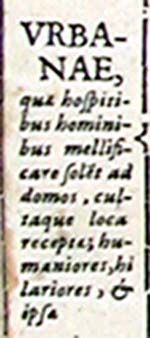 VRBA-
NAE,
quæ hoſpiti-
bus homini-
bus mellifi-
care ſolẽt ad
domos, cul-
taque loca
receptæ; hu-
maniores, hi
lariores, &
ipſa